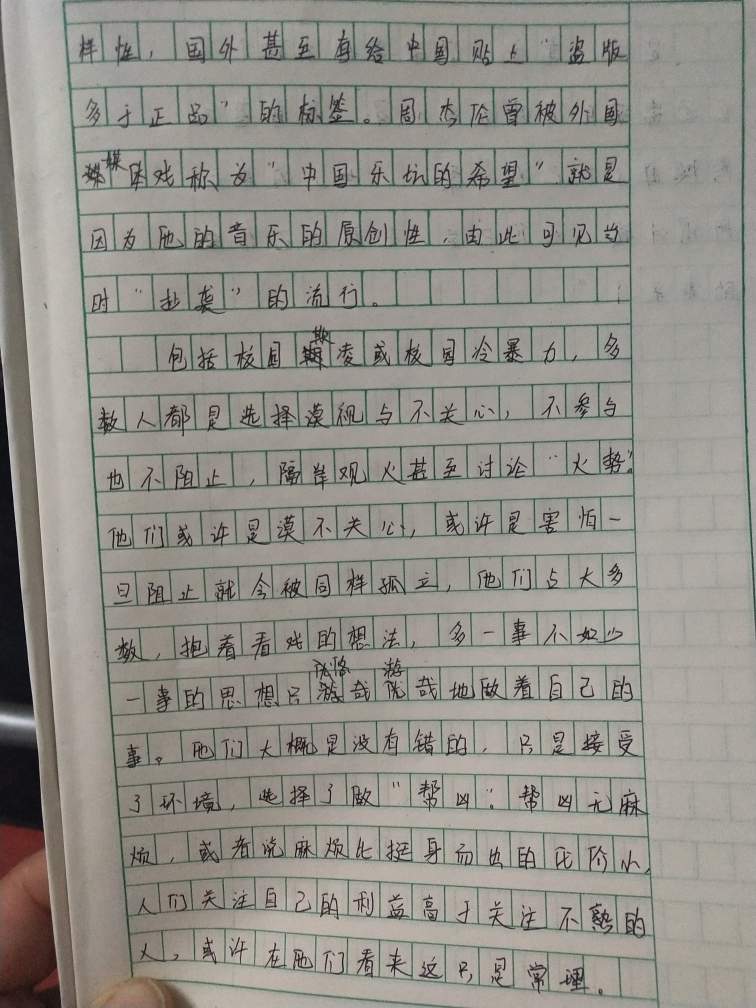 样性，国外甚至有给中国贴上“盗版
多于正品”的标签。周杰伦曾被外国
媒体戏称为“中国乐坛的希望”就是
因为他的音乐的原创性，由此可见当
时“抄袭”的流行。
包括校园欺凌或校园冷暴力，多
数人都是选择漠视与不关心，不参与
也不阻止，隔岸观火甚至讨论“火势”。
他们或许是漠不关心，或许是害怕一
旦阻止就会被同样孤立，他们占大多
数，抱着看戏的想法，多一事不如少
一事的思想只悠哉游哉地做着自己的
事。他们大概是没有错的，只是接受
了环境，选择了做“帮凶”。帮凶无麻
烦，或者说麻烦比挺身而出的代价小，
人们关注自己的利益高于关注不熟的
人，或许在他们看来这只是常理。